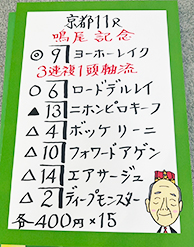 京都11R
鳴尾記念
◎ 9 ヨーホーレイク
3連複1頭軸流
○ 6 ロードデルレイ
▲ 13 ニホンピロキーフ
△ 4 ボッケリーニ
△ 10 フォワードアゲン
△ 14 エアサージュ
△ 2 ディープモンスター
各-400円×15